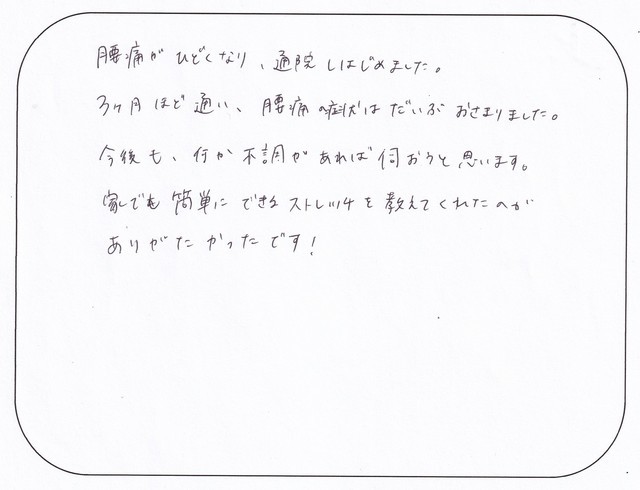 腰痛がひどくなり、通院しはじめました。
3ヶ月ほど通い、腰痛の症状はだいぶおさまりました。
今後も、何か不調があれば伺おうと思います。
家でも簡単にできるストレッチを教えてくれたのが
ありがたかったです!